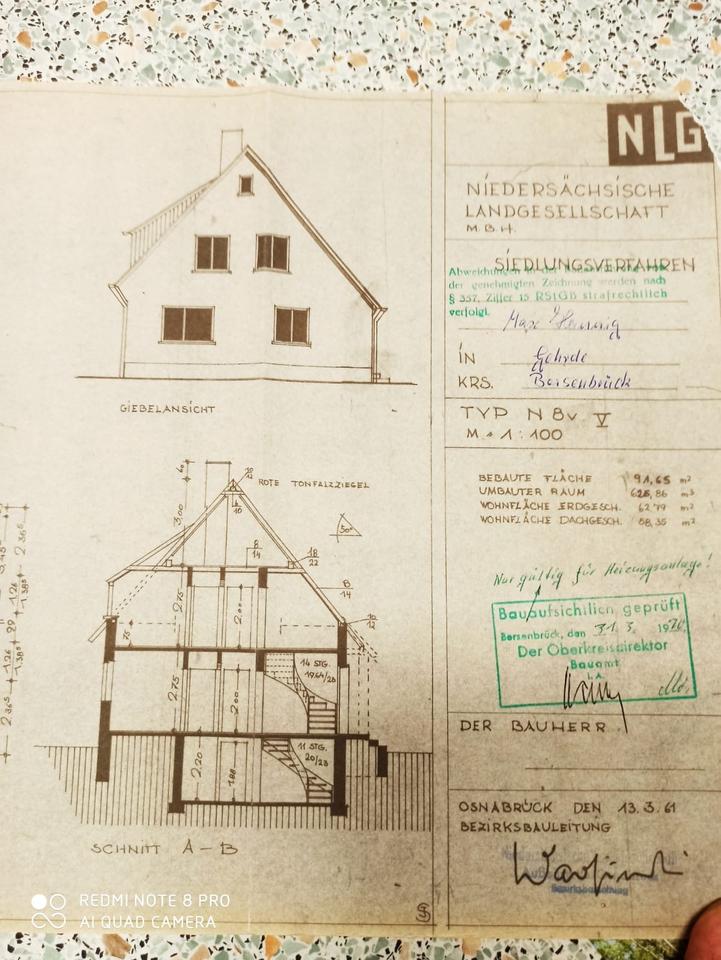 NLG
NIEDERSÄCHSISCHE
LANDGESELLSCHAFT
M.B.H.
SIEDLUNGSVERFAHREN
Abweichungen
der genehmigten Zeichnung werden nach
§ 357, Ziffer 15 RStGB strafrechtlich
verfolgt.
Max Hennig
IN Gehrde
KRS. Bersenbrück
TYP N 8v V
M. 1:100
GIEBELANSICHT
BEBAUTE FLÄCHE 91,65 m²
UMBAUTER RAUM 625,86 m³
WOHNFLÄCHE ERDGESCH. 62,79 m²
WOHNFLÄCHE DACHGESCH. 58,35 m²
ROTE TONFALZZIEGEL
60
10
12
16
3,00
50°
8
14
18
22
8
14
10
12
2,75
2,00
75
14 STG.
19,64/26
2,75
2,00
11 STG.
20/23
2,20
1,88
2,36⁵
1,26
1,38⁵
99
1,26
1,38⁵
2,36⁵
Nur gültig für Heizungsanlage!
Bauaufsichtlich geprüft
Bersenbrück, den 31. 3. 19
Der Oberkreisdirektor
Bauamt
I. A.
DER BAUHERR
OSNABRÜCK DEN 13.3.61
BEZIRKSBAULEITUNG
Bezirksbauleitung
SCHNITT A-B
REDMI NOTE 8 PRO
AI QUAD CAMERA